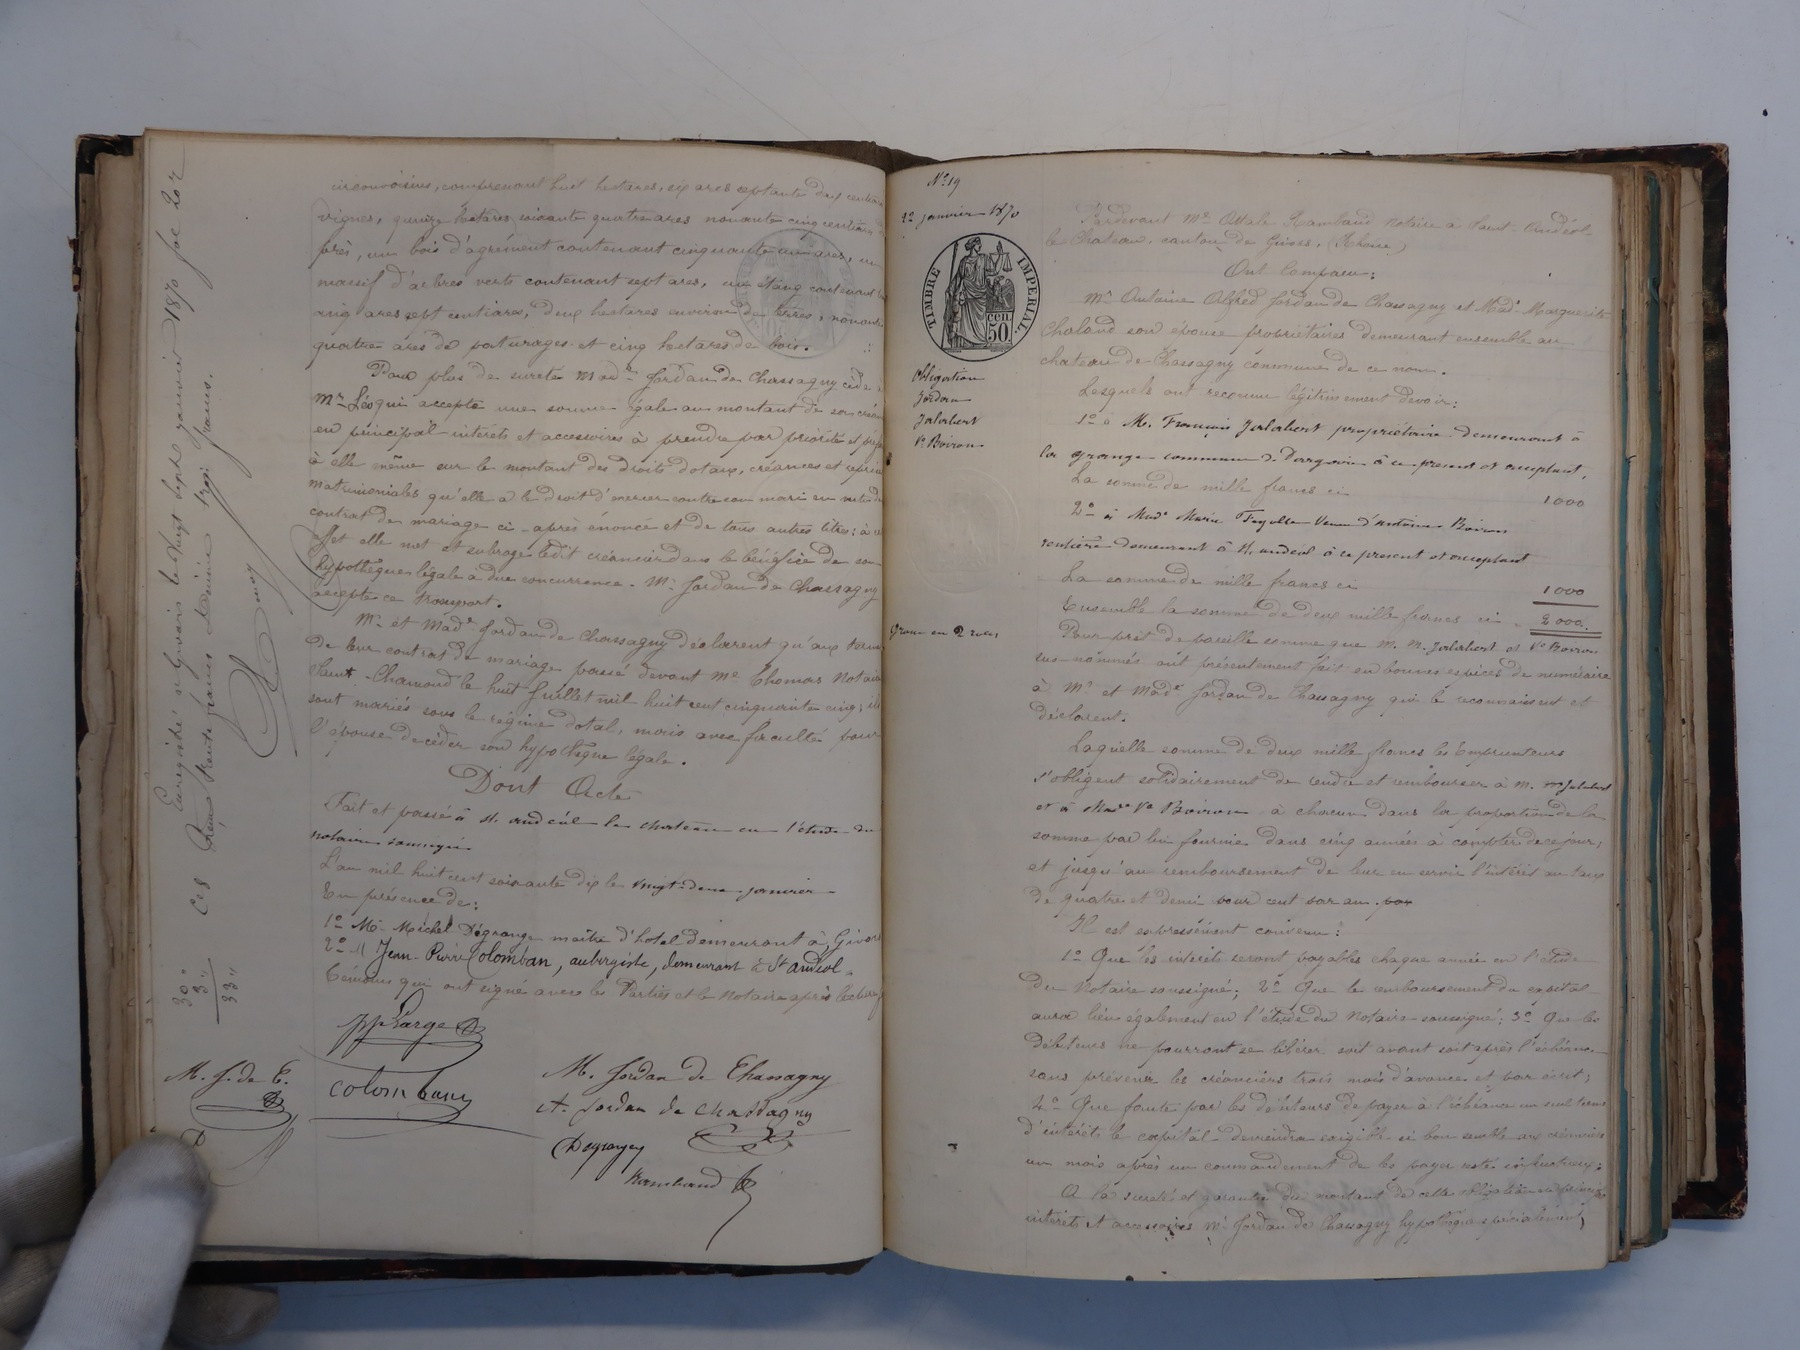 circonvoisins, comprenant huit hectares, six ares septante deux centiares
vignes, quinze hectares soixante quatre ares nonante cinq centiares
prés, un bois d'agrément contenant cinquante un ares, un
massif d'arbres verts contenant sept ares, un étang contenant
cinq ares sept centiares, deux hectares environ de terres, nonante
quatre ares de paturages et cinq hectares de bois.
Pour plus de sureté Made Jordan de Chassagny cède à
Mr qui accepte une somme égale au montant de son créan
en principal intérêts et accessoires à prendre par priorité et préf
à elle même sur le montant des droits dotaux, créances et reprises
matrimoniales qu'elle a le droit d'exercer contre son mari en vertu du
contrat de mariage ci-après énoncé et de tous autres titres; à cet
effet elle met et subroge ledit créancier dans le bénéfice de son
hypothèque légale à due concurrence. Mr Jordan de Chassagny
accepte ce transport.
Mr et Made Jordan de Chassagny déclarent qu'aux termes
de leur contrat de mariage passé devant Me Thomas Notaire
Saint-Chamond le huit Juillet mil huit cent cinquante cinq; ils
sont mariés sous le régime dotal, mais avec faculté pour
l'épouse de céder son hypothèque légale.
Dont Acte
Fait et passé à St andéol le chateau en l'étude du
notaire soussigné
L'an mil huit cent soixante dix le vingt-deux janvier
En présence de:
1º Mr Michel Dégrange maître d'hotel demeurant à Givors
2º M Jean-Pierre Colomban, aubergiste, demeurant à St andéol
témoins qui ont signé avec les Parties et le Notaire après lecture
Colomban
M. J. de C.
M. Jordan de Chassagny
A. Jordan de Chassagny
Rambaud
Enregistré à Givors le vingt sept janvier 1870 foe 202
Reçu trente francs décime trois francs.
30"
3"
33"
Nº 19
22 janvier 1870
TIMBRE IMPERIAL
50 cen.
Obligation
Jordan
Jalabert
Ve Boiron
Grosse en 2 roles
Pardevant Me Rambaud Notaire à Saint-Andéol-
le Chateau, canton de Givors, (Rhône)
Ont Comparu:
Mr Antoine Alfred Jordan de Chassagny et Made Marguerite
Chaland son épouse propriétaires demeurant ensemble au
chateau de Chassagny commune de ce nom.
Lesquels ont reconnu légitimement devoir:
1º à M. François Jalabert propriétaire demeurant à
la grange commune de Dargoire à ce présent et acceptant,
La somme de mille francs ci 1000
2º à Made Marie Fayolle Veuve d'Antoine Boiron
rentière demeurant à St andéol à ce présent et acceptant
La somme de mille francs ci 1000
Ensemble la somme de deux mille francs ci 2000.
Pour prêt de pareille somme que M. M. Jalabert et Ve Boiron
sus-nommés ont présentement fait en bonnes espèces de numéraire
à Mr et Made Jordan de Chassagny qui le reconnaissent et
déclarent.
Laquelle somme de deux mille francs les Emprunteurs
s'obligent solidairement de rendre et rembourser à M. Jalabert
et à Made Ve Boiron à chacun dans la proportion de la
somme par lui fournie dans cinq années à compter de ce jour,
et jusqu'au remboursement de leur en servir l'intérêt au taux
de quatre et demi pour cent par an. par
Il est expressément convenu:
1º Que les intérêts seront payables chaque année en l'étude
du Notaire soussigné; 2º Que le remboursement du capital
aura lieu également en l'étude du Notaire soussigné; 3º Que les
débiteurs ne pourront se libérer soit avant soit après l'échéance
sans prévenir les créanciers trois mois d'avance et par écrit;
4º Que faute par les débiteurs de payer à l'échéance un seul terme
d'intérêts le capital deviendra exigible si bon semble aux créanciers
un mois après un commandement de les payer resté infructueux;
A la sureté et garantie du montant de cette obligation en principal
intérêts et accessoires Mr Jordan de Chassagny hypothèque spécialement,